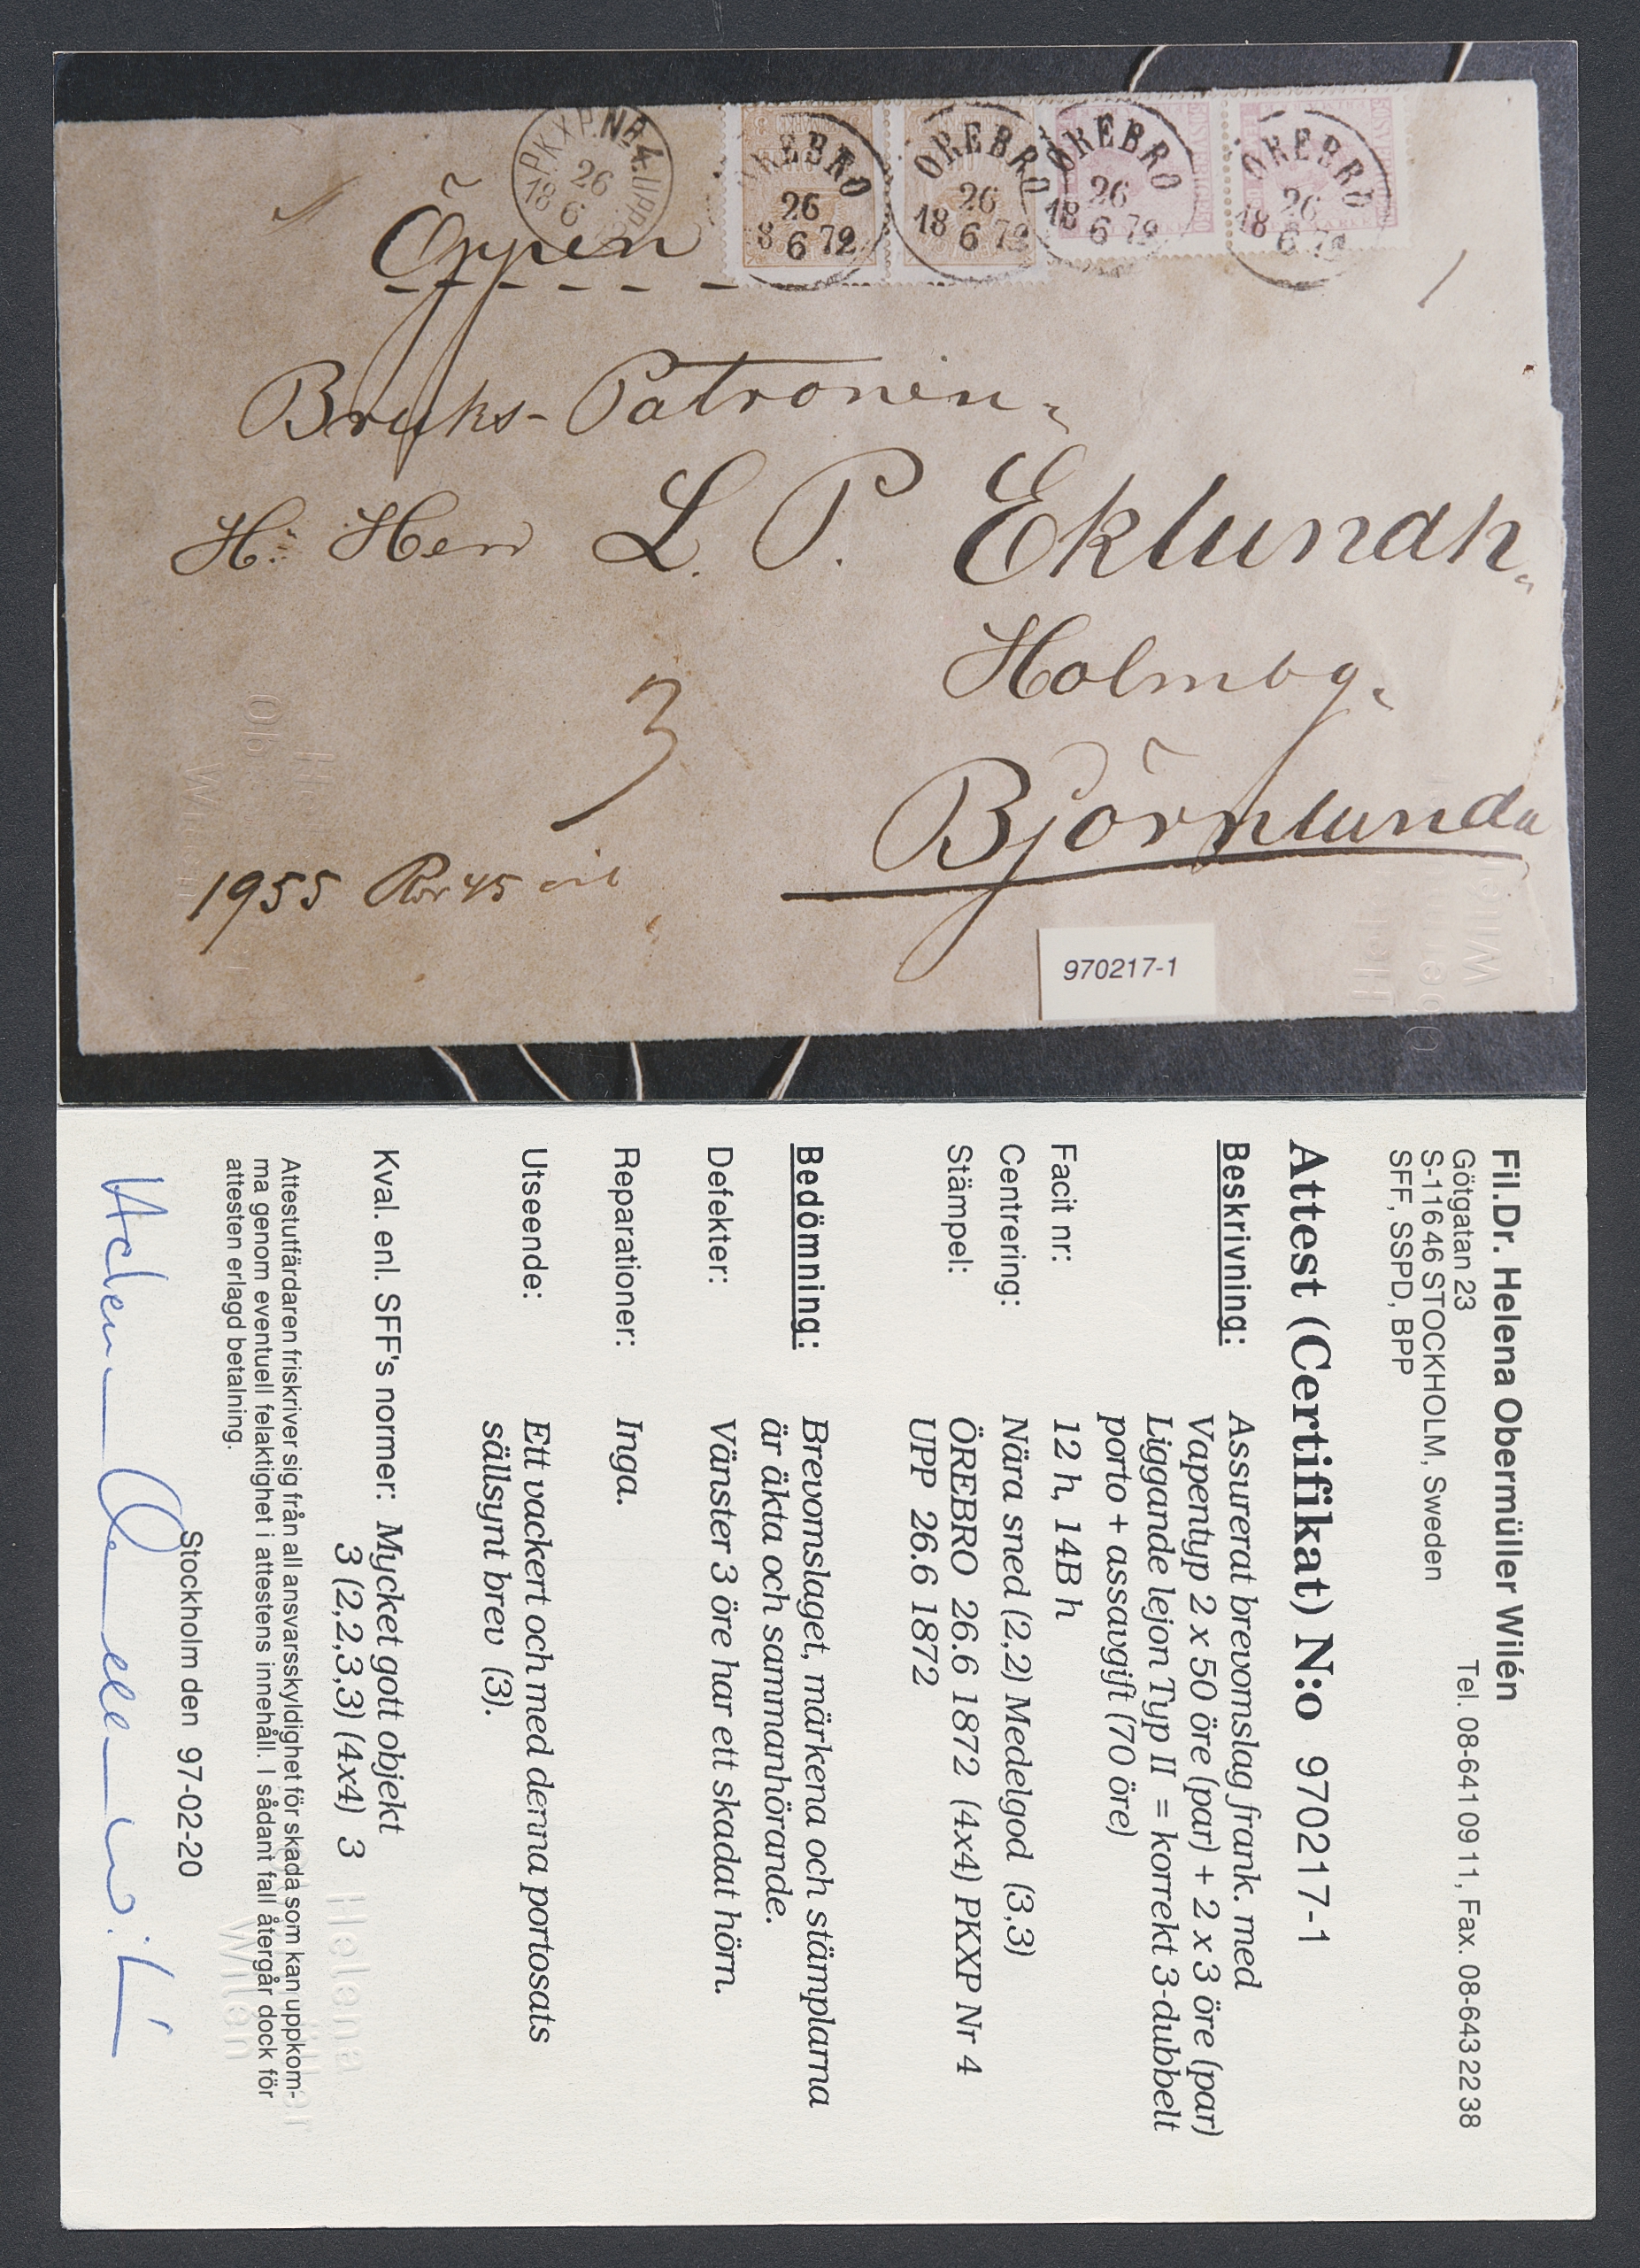 PKXP. Nr. 4. UPP
26
18 6
ÖREBRO
26
8 6 72
ÖREBRO
26
18 6 72
ÖREBRO
26
18 6 72
ÖREBRO
26
18 6 72
Öppen
Bruks-Patronen
H: Herr L. P. Eklundh
Holmby
Björnlunda
3
1955
970217-1
Fil.Dr. Helena Obermüller Wilén
Götgatan 23 Tel. 08-641 09 11, Fax. 08-643 22 38
S-116 46 STOCKHOLM, Sweden
SFF, SSPD, BPP
Attest (Certifikat) N:o 970217-1
Beskrivning: Assurerat brevomslag frank. med
Vapentyp 2 x 50 öre (par) + 2 x 3 öre (par)
Liggande lejon Typ II = korrekt 3-dubbelt
porto + assavgift (70 öre)
Facit nr: 12 h, 14B h
Centrering: Nära sned (2,2) Medelgod (3,3)
Stämpel: ÖREBRO 26.6 1872 (4x4) PKXP Nr 4
UPP 26.6 1872
Bedömning: Brevomslaget, märkena och stämplarna
är äkta och sammanhörande.
Defekter: Vänster 3 öre har ett skadat hörn.
Reparationer: Inga.
Utseende: Ett vackert och med denna portosats
sällsynt brev (3).
Kval. enl. SFF's normer: Mycket gott objekt
3 (2,2,3,3) (4x4) 3
Attestutfärdaren friskriver sig från all ansvarsskyldighet för skada som kan uppkom-
ma genom eventuell felaktighet i attestens innehåll. I sådant fall återgår dock för
attesten erlagd betalning.
Stockholm den 97-02-20
Helena
Wilén